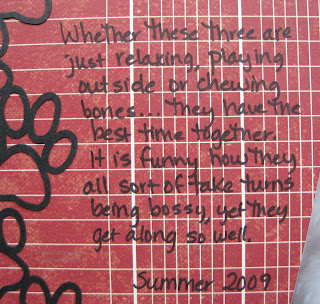 Whether these three are
just relaxing, playing
outside or chewing
bones... they have the
best time together.
It is funny how they
all sort of take turns
being bossy, yet they
get along so well.
Summer 2009